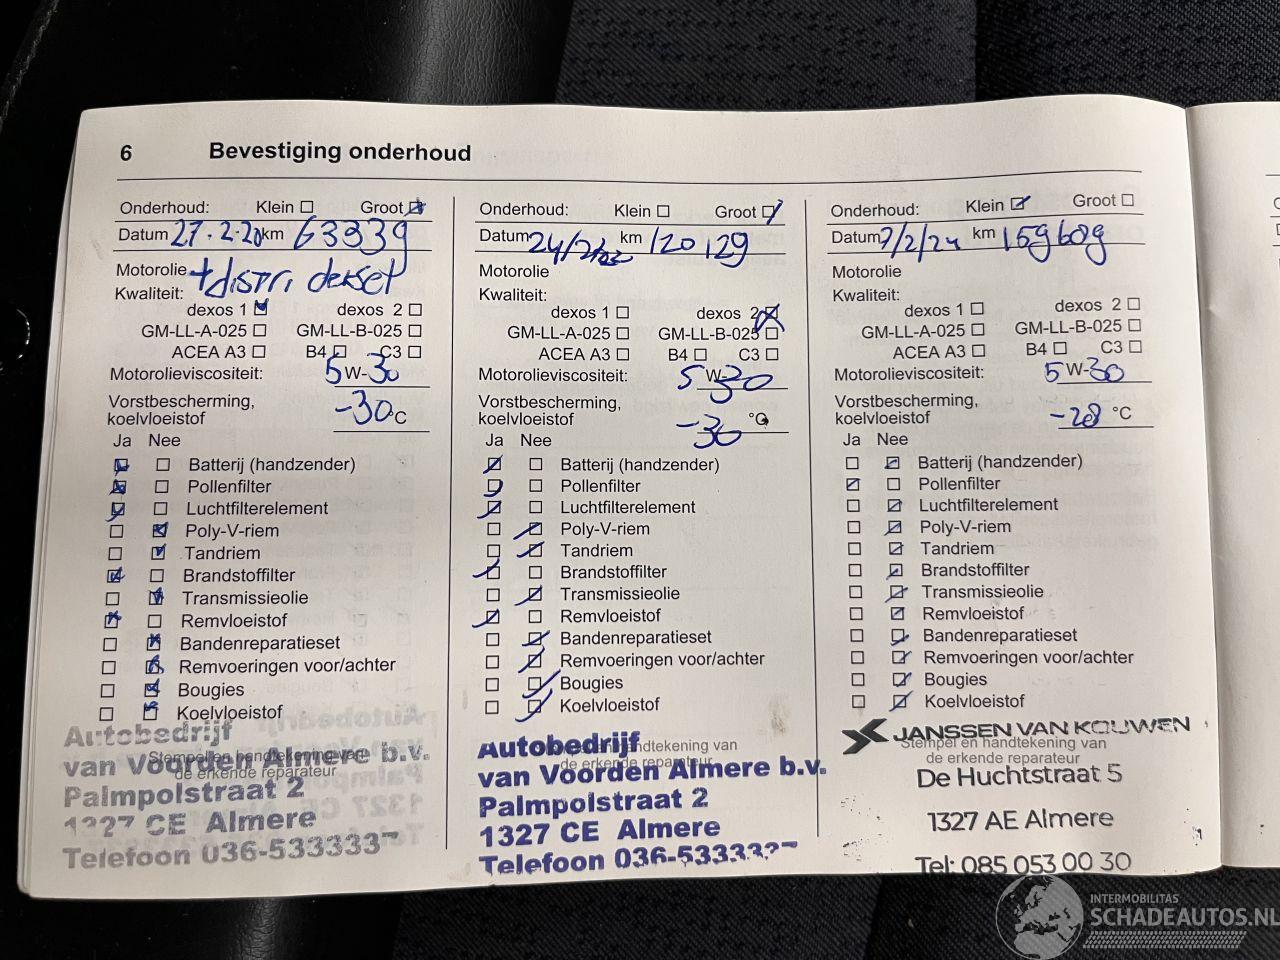 6 Bevestiging onderhoud
Onderhoud: Klein Groot
Datum 27.2.20 km 63339
Motorolie + distri. deksel
Kwaliteit:
dexos 1 dexos 2
GM-LL-A-025 GM-LL-B-025
ACEA A3 B4 C3
Motorolieviscositeit: 5 W-30
Vorstbescherming,
koelvloeistof -30 °C
Ja Nee
Batterij (handzender)
Pollenfilter
Luchtfilterelement
Poly-V-riem
Tandriem
Brandstoffilter
Transmissieolie
Remvloeistof
Bandenreparatieset
Remvoeringen voor/achter
Bougies
Koelvloeistof
Stempel en handtekening van
de erkende reparateur
Autobedrijf
van Voorden Almere b.v.
Palmpolstraat 2
1327 CE Almere
Telefoon 036-5333337
Onderhoud: Klein Groot
Datum 24/2/ km 120129
Motorolie
Kwaliteit:
dexos 1 dexos 2
GM-LL-A-025 GM-LL-B-025
ACEA A3 B4 C3
Motorolieviscositeit: 5 W-30
Vorstbescherming,
koelvloeistof -30 °C
Ja Nee
Batterij (handzender)
Pollenfilter
Luchtfilterelement
Poly-V-riem
Tandriem
Brandstoffilter
Transmissieolie
Remvloeistof
Bandenreparatieset
Remvoeringen voor/achter
Bougies
Koelvloeistof
en handtekening van
de erkende reparateur
Autobedrijf
van Voorden Almere b.v.
Palmpolstraat 2
1327 CE Almere
Telefoon 036-5333337
Onderhoud: Klein Groot
Datum 7/2/24 km 159689
Motorolie
Kwaliteit:
dexos 1 dexos 2
GM-LL-A-025 GM-LL-B-025
ACEA A3 B4 C3
Motorolieviscositeit: 5 W-30
Vorstbescherming,
koelvloeistof -28 °C
Ja Nee
Batterij (handzender)
Pollenfilter
Luchtfilterelement
Poly-V-riem
Tandriem
Brandstoffilter
Transmissieolie
Remvloeistof
Bandenreparatieset
Remvoeringen voor/achter
Bougies
Koelvloeistof
JANSSEN VAN KOUWEN
Stempel en handtekening van
de erkende reparateur
De Huchtstraat 5
1327 AE Almere
Tel: 085 053 00 30
INTERMOBILITAS
SCHADEAUTOS.NL